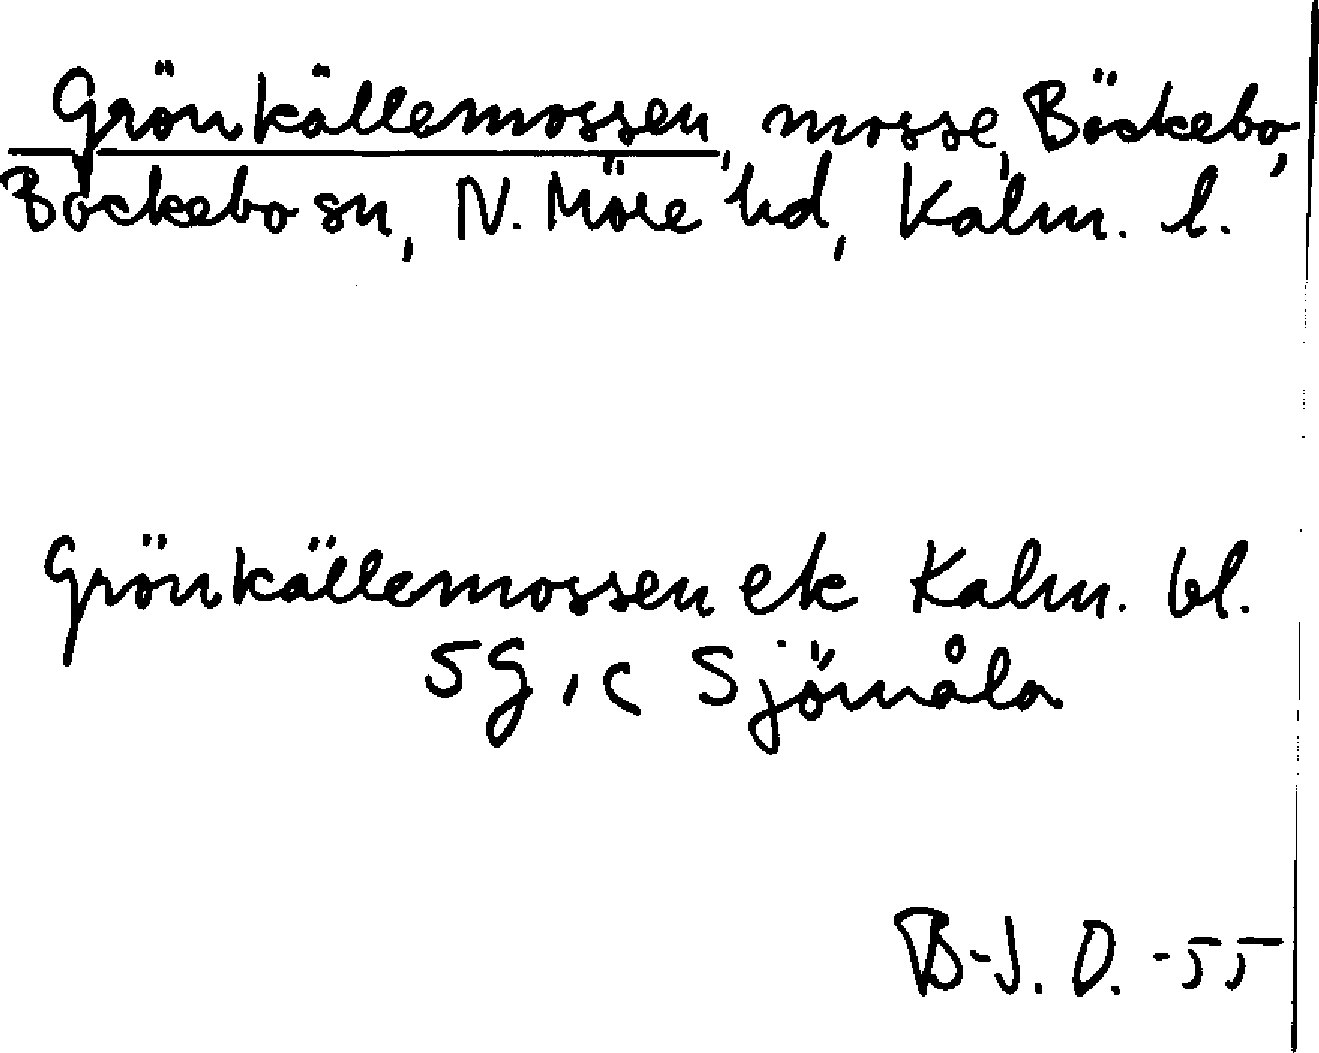 Grönkällemossen, mosse, Böckebo,
Böckebo sn, N. Möre hd, Kalm. l.
Grönkällemossen ek Kalm. bl.
5g, c Sjömåla
B-J. O. -55